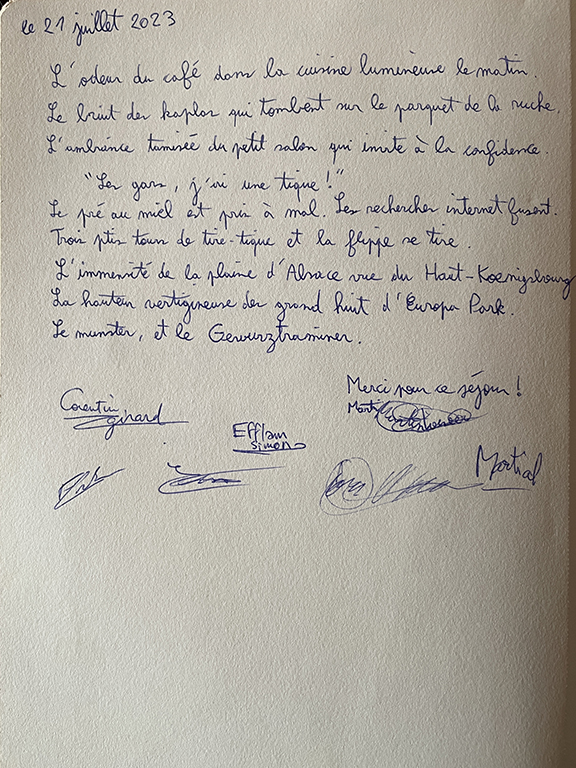 le 21 juillet 2023
L'odeur du café dans la cuisine lumineuse le matin.
Le bruit des kaplas qui tombent sur le parquet de la ruche.
L'ambiance tamisée du petit salon qui invite à la confidence.
"Les gars, j'ai une tique !"
Le pré au miel est pris à mal. Les recherches internet fusent.
Trois ptis tours de tire-tique et la flippe se tire.
L'immensité de la plaine d'Alsace vue du Haut-Koenigsbourg
La hauteur vertigineuse des grand huit d'Europa Park.
Le munster, et le Gewurztraminer.
Merci pour ce séjour !
Corentin
girard
Efflam
Simon
Martial